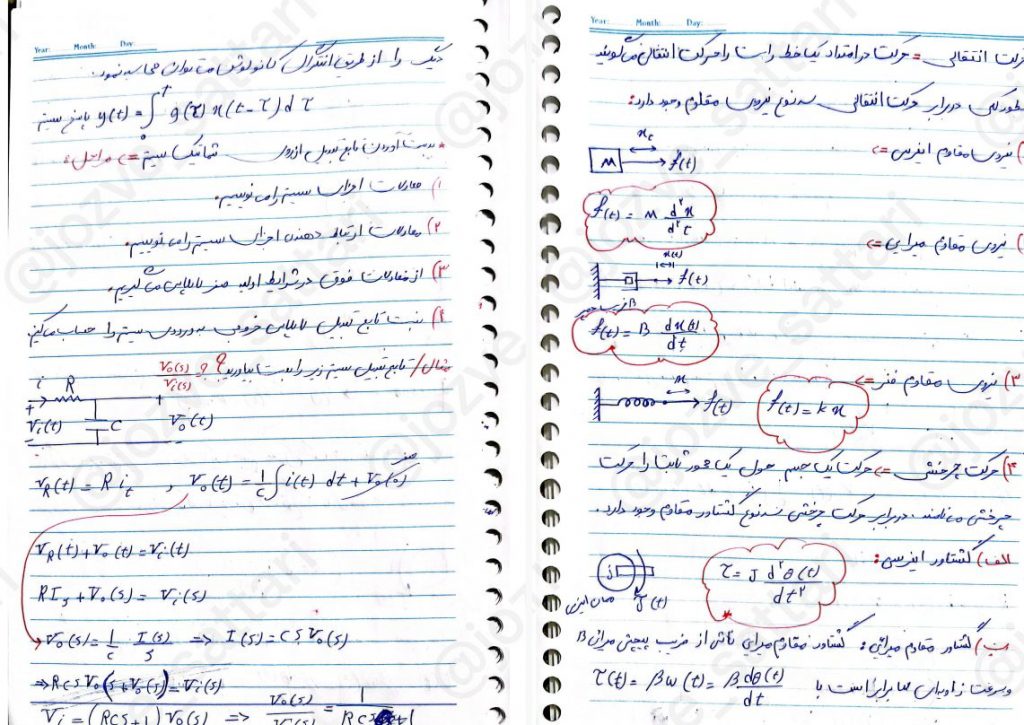 Year: Month: Day:
دیگر را از طریق انتگرال کانولوشن می توان محاسبه نمود.
پاسخ سیستم y(t) = ∫₀ᵗ g(τ) x(t-τ) dτ
* بدست آوردن تابع تبدیل از روی شماتیک سیستم => مراحل:
۱) معادلات اجزای سیستم را می نویسیم.
۲) معادلات ارتباط دهنده اجزای سیستم را می نویسیم.
۳) از معادلات فوق در شرایط اولیه صفر لاپلاس می گیریم.
۴) نسبت تابع تبدیل لاپلاس خروجی به ورودی سیستم را حساب می کنیم.
مثال/ تابع تبدیل سیستم زیر را بدست بیاورید؟ V₀(s)/Vi(s)
i R
+ +
Vi(t) C V₀(t)
- -
صفر
VR(t) = R it , V₀(t) = 1/C ∫ i(t) dt + V₀(0)
VR(t) + V₀(t) = Vi(t)
RIs + V₀(s) = Vi(s)
V₀(s) = 1/C I(s)/S => I(s) = CS V₀(s)
=> RCS V₀(s) + V₀(s) = Vi(s)
Vi = (RCS+1) V₀(s) => V₀(s)/Vi(s) = 1/RCS+1
Year: Month: Day:
حرکت انتقالی = حرکت در امتداد یک خط راست را حرکت انتقالی می گویند
بطور کلی در برابر حرکت انتقالی سه نوع نیروی مقاوم وجود دارد:
) نیروی مقاوم اینرسی =>
xt
M f(t)
f(t) = M d²x/d²t
) نیروی مقاوم میرایی =>
x(t)
f(t)
B ضریب
f(t) = B dx(t)/dt
۳) نیروی مقاوم فنر =>
x
f(t)
f(t) = k x
۴) حرکت چرخشی => حرکت یک جسم حول یک محور ثابت را حرکت
چرخشی می نامند. در برابر حرکت چرخشی سه نوع گشتاور مقاوم وجود دارد.
الف) گشتاور اینرسی:
J
τ(t)
ممان اینرسی
τ = J d²θ(t)/dt²
ب) گشتاور مقاوم میرایی: گشتاور مقاوم میرایی ناشی از ضریب پیچشی میرایی B
و سرعت زاویه ای ω برابر است با τ(t) = βω(t) = β dθ(t)/dt
@jozve_sattari